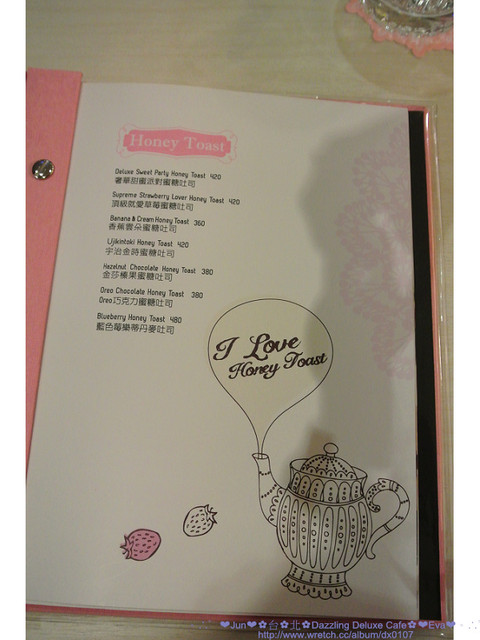 Honey Toast
Deluxe Sweet Party Honey Toast 420
奢華甜蜜派對蜜糖吐司
Supreme Strawberry Lover Honey Toast 420
頂級就愛草莓蜜糖吐司
Banana & Cream Honey Toast 360
香蕉雲朵蜜糖吐司
Ujikintoki Honey Toast 420
宇治金時蜜糖吐司
Hazelnut Chocolate Honey Toast 380
金莎榛果蜜糖吐司
Oreo Chocolate Honey Toast 380
Oreo巧克力蜜糖吐司
Blueberry Honey Toast 480
藍色莓樂蒂丹麥吐司
I Love
Honey Toast
❤Jun❤✿台✿北✿Dazzling Deluxe Cafe✿❤Eva❤
http://www.wretch.cc/album/dx0107